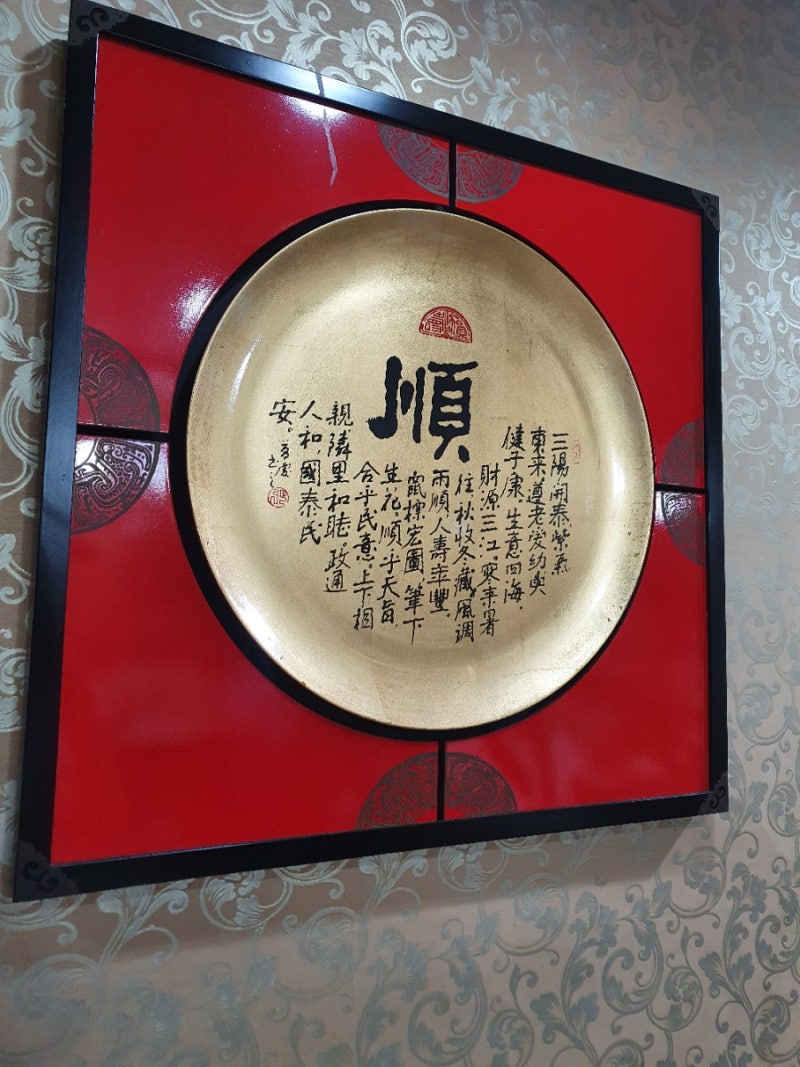 順
三陽開泰紫氣
東来遵老爱幼
健子康。生意四海，
財源三江。寒来暑
往秋收冬藏。風調
雨順人壽年豐。
標宏圖。筆下
生花。順乎天旨，
合乎民意。上下相
親隣里和睦。政通
人和，國泰民
安。